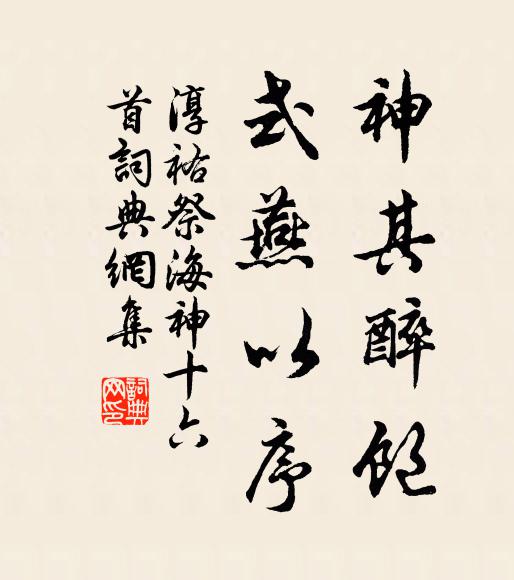 神其醉飽
式燕以序
淳祐祭海神十六
首詞典網集
詞典網印